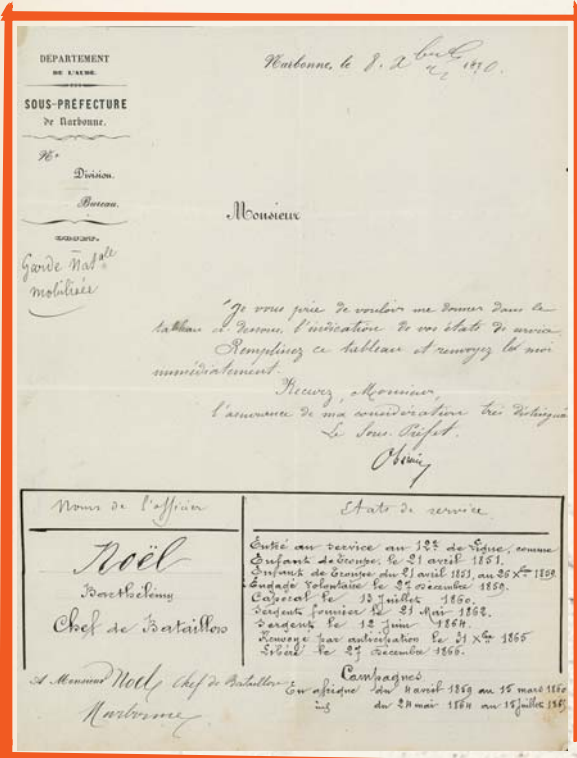 DÉPARTEMENT
DE L'AUDE.
SOUS-PRÉFECTURE
de Narbonne.
Nº
Division.
Bureau.
OBJET.
Garde Natale
mobilisée
Narbonne, le 8. Xbre 1870.
Monsieur
Je vous prie de vouloir me donner dans le
tableau ci-dessous, l'indication de vos états de service.
Remplissez ce tableau et renvoyez les moi
immédiatement.
Recevez, Monsieur,
l'assurance de ma considération très distinguée
Le Sous-Préfet.
Noms de l'officier
Noël
Barthélémy
Chef de Bataillon
États de service
Entré au service au 12e de Ligne, comme
Enfant de troupe, le 21 avril 1851.
Enfant de troupe du 21 avril 1851, au 26 Xbre 1859.
Engagé volontaire le 27 Décembre 1859.
Caporal le 13 Juillet 1860.
Sergent fourrier le 21 Mai 1862.
Sergent le 12 Juin 1864.
Renvoyé par anticipation le 31 Xbre 1865
Libéré le 27 Décembre 1866.
A Monsieur Noël, Chef de Bataillon
Narbonne
Campagnes
En afrique du 4 avril 1859 au 15 mars 1860
du 24 mai 1864 au 15 Juillet